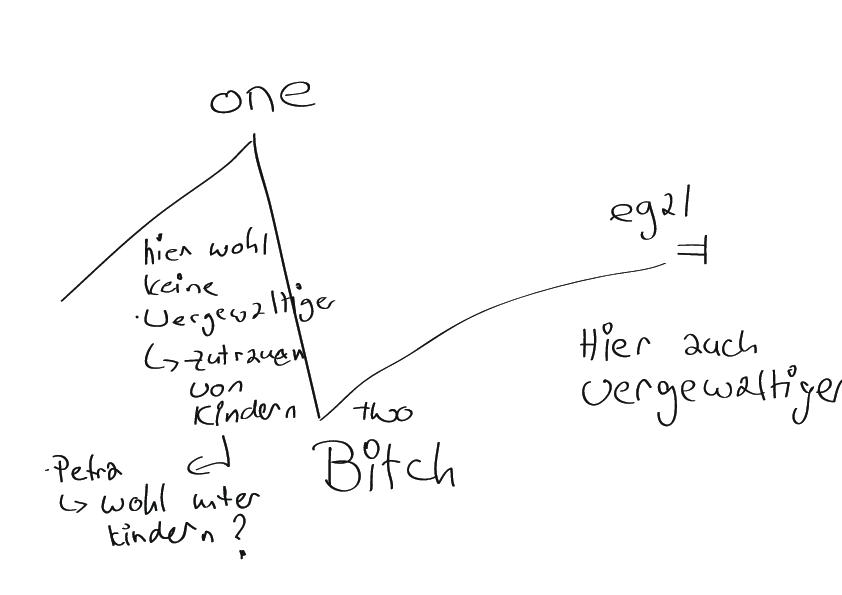 one
hier wohl
keine
·Vergewaltiger
↳ zutrauen
von
Kindern
·Petra
↳ wohl unter
kindern?
two
Bitch
egal
Hier auch
vergewaltiger